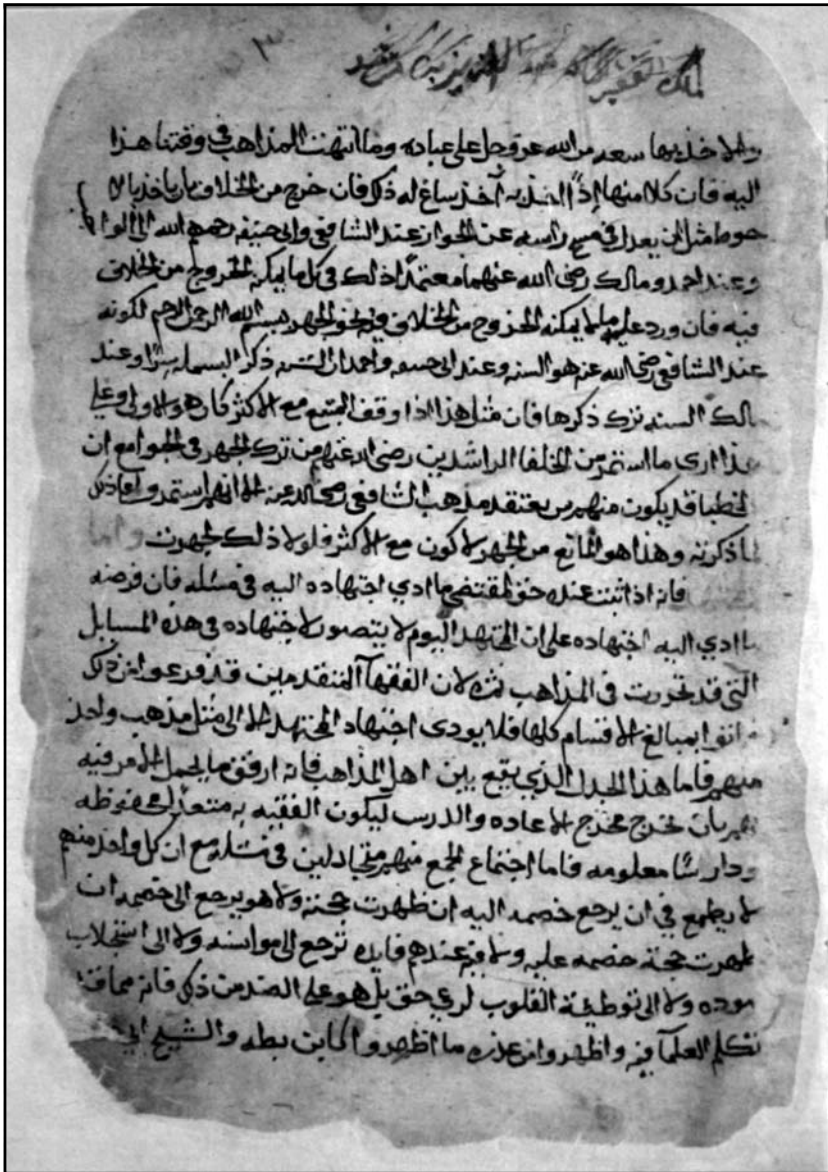 والاخذ بها سعه من الله عز وجل على عباده وما انتهت المذاهب في وقتنا هذا
اليه فان كلا منها إذا اخذ به آخذ ساغ له ذلك فان خرج من الخلاف بان ياخذ بالا
حوط مثل ان يعدل في مسح راسه عن الجواز عند الشافعي وابي حنيفه رحمهم الله الى
وعند احمد ومالك رضي الله عنهما معتمدا ذلك في كل ما يمكنه الخروج من الخلاف
فيه فان ورد عليه ما لا يمكنه الخروج من الخلاف فيه نحو الجهر ببسم الله الرحمن الرحيم لكونه
عند الشافعي رضي الله عنه هو السنه وعند ابي حنيفه واحمد ان السنه ذكر البسمله سرا وعند
مالك السنه ترك ذكرها فان مثل هذا اذا وقف المتبع مع الاكثر كان هو الاولى وعلي
هذا ارى ما استمر من الخلفا الراشدين رضي الله عنهم من ترك الجهر في الجوامع ان
الخطبا قد يكون منهم من يعتقد مذهب الشافعي رضي الله عنه الا انهم استمروا على ذلك
لما ذكرته وهذا هو المانع من الجهر لاكون مع الاكثر فلولا ذلك لجهرت واما
المجتهد فانه اذا ثبت عنده حق لمقتضى ما ادي اجتهاده اليه في مسئله فان فرضه
ما ادي اليه اجتهاده على ان المجتهد اليوم لا يتصور لاجتهاده في هذه المسايل
التي قد تحررت في المذاهب ثمرة لان الفقهآ المتقدمين قد فرغوا من ذلك
فاتوا بمبالغ الاقسام كلها فلا يودى اجتهاد المجتهد الا الى مثل مذهب واحد
منهم فاما هذا الجدل الذي يقع بين اهل المذاهب فانه ارفق ما يحمل الامر فيه
بان يخرج مخرج الاعاده والدرس ليكون الفقيه به محفوظه
ودارسا معلومه فاما اجتماع الجمع منهم متجادلين في مسئله مع ان كل واحد منهم
لا يطمع في ان يرجع خصمه اليه ان ظهرت حجته ولا هو يرجع الى خصمه ان
ظهرت حجة خصمه عليه ولا فيه عندهم فايده ترجع الى موانسه ولا الى استجلاب
موده ولا الى توطئة القلوب لوعي حق بل هو على الضد من ذلك فانه مما قد
تكلم العلمآ فيه واظهروا من عذره ما اظهروا كابن بطه والشيخ ابي